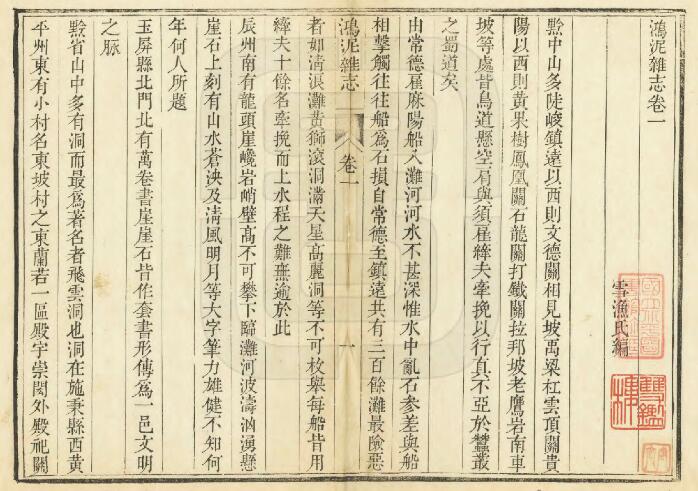 鴻泥雜志卷一
雪漁氏編
黔中山多陡峻鎮遠以西則文德關相見坡禹梁杠雲頂關貴
陽以西則黃果樹鳳凰關石龍關打鐵關拉邦坡老鷹岩南車
坡等處皆鳥道懸空肩輿須雇縴夫牽挽以行真不亞於蠶叢
之蜀道矣
由常德雇麻陽船入灘河河水不甚深惟水中亂石參差與船
相擊觸往往船為石損自常德至鎮遠共有三百餘灘最險惡
鴻泥雜志
卷一
一
者如清浪灘黃獅滾洞滿天星高麗洞等不可枚舉每船皆用
縴夫十餘名牽挽而上水程之難無逾於此
辰州南有龍頭崖巉岩峭壁高不可攀下臨灘河波濤洶湧懸
崖石上刻有山水蒼泱及清風明月等大字筆力雄健不知何
年何人所題
玉屏縣北門北有萬卷書崖崖石皆作套書形傳為一邑文明
之脉
黔省山中多有洞而最為著名者飛雲洞也洞在施秉縣西黃
平州東有小村名東坡村之東蘭若一區殿宇崇閎外殿祀關